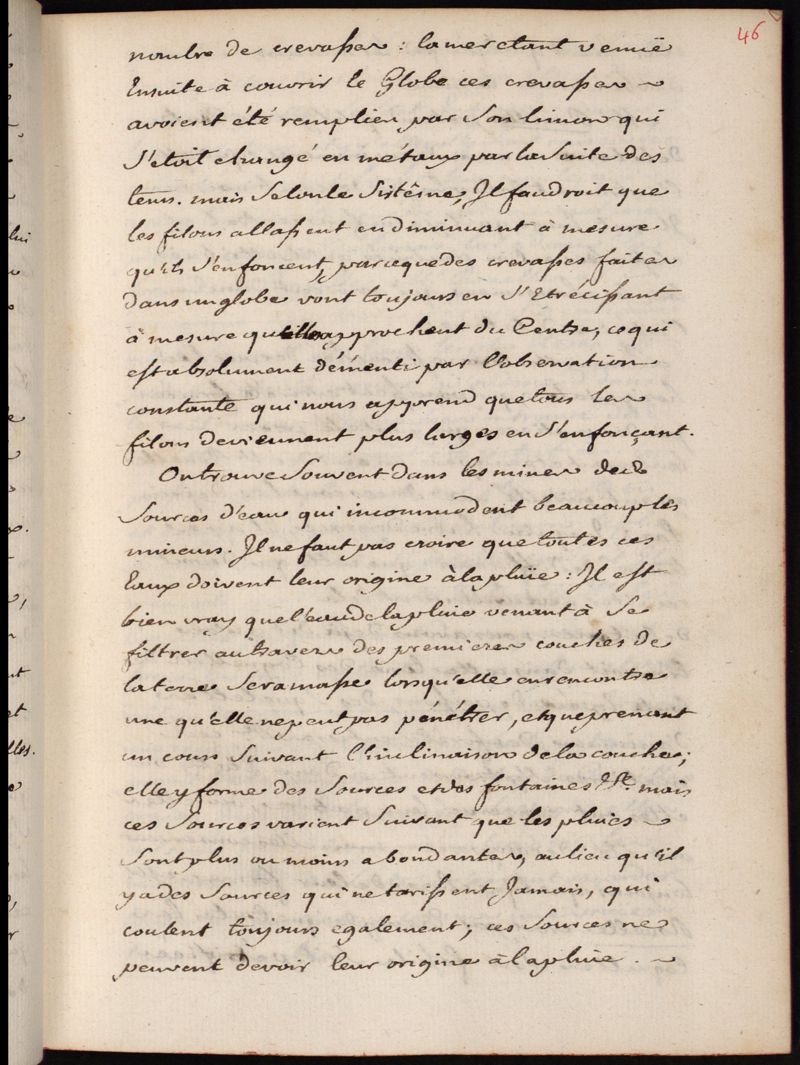 46
nombre de crevasses : la mer etant venuë
Ensuite à couvrir le Globe ces crevasses ~
avoient été remplies par son limon qui
s'étoit changé en métaux par la suite des
tems. mais selon le sistême, Il faudroit que
les filons allassent en diminuant à mesure
qu'ils s'enfoncent, parceque des crevasses faites
dans un globe vont toujours en s'Etrécissant
à mesure qu'elles approchent du Centre, ce qui
est absolument démenti par l'observation
constante qui nous apprend que tous les
filons deviennent plus larges en s'enfonçant.
On trouve souvent dans les mines des
sources d'eau qui incommodent beaucoup les
mineurs. Il ne faut pas croire que toutes ces
Eaux doivent leur origine à la pluïe : Il est
bien vray que l'eau de la pluie venant à se
filtrer au travers des premieres couches de
la terre seramasse lorsqu'elle en rencontre
une qu'elle ne peut pas pénétrer, et que prenant
un cours suivant l'inclinaison de la couche ;
elle y forme des sources et des fontaines &c. mais
ces sources varient suivant que les pluies ~
sont plus ou moins abondantes, au lieu qu'il
y a des sources qui ne tarissent Jamais, qui
coulent toujours egalement ; ces sources ne
peuvent devoir leur origine à la pluïe . ~